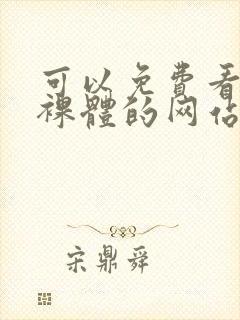 可以免费看
裸體的网站
宋鼎舜